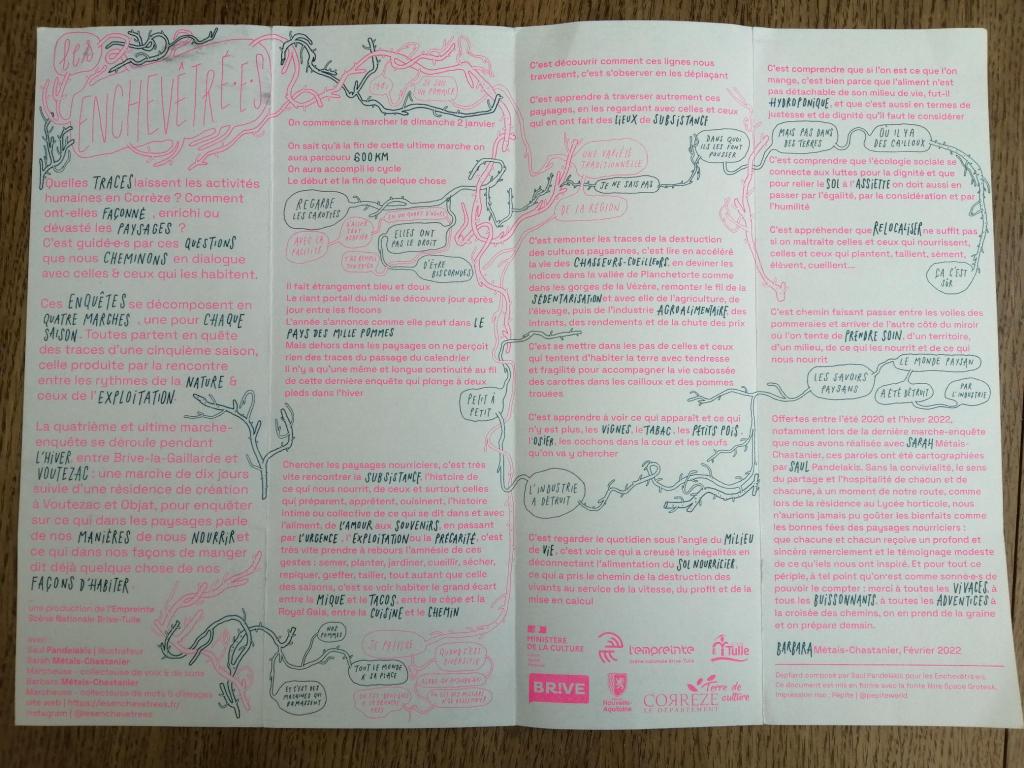 les
ENCHEVÊTRÉ·E·S
Quelles TRACES laissent les activités
humaines en Corrèze ? Comment
ont-elles FAÇONNÉ, enrichi ou
dévasté les PAYSAGES ?
C'est guidé·e·s par ces QUESTIONS
que nous CHEMINONS en dialogue
avec celles & ceux qui les habitent.
Ces ENQUÊTES se décomposent en
QUATRE MARCHES, une pour CHAQUE
SAISON. Toutes partent en quête
des traces d'une cinquième saison,
celle produite par la rencontre
entre les rythmes de la NATURE &
ceux de l'EXPLOITATION.
La quatrième et ultime marche-
enquête se déroule pendant
L'HIVER, entre Brive-la-Gaillarde et
VOUTEZAC : une marche de dix jours
suivie d'une résidence de création
à Voutezac et Objat, pour enquêter
sur ce qui dans les paysages parle
de nos MANIÈRES de nous NOURRIR et
ce qui dans nos façons de manger
dit déjà quelque chose de nos
FAÇONS D'HABITER.
une production de l'Empreinte
Scène Nationale Brive-Tulle
avec :
Saul Pandelakis | illustrateur
Sarah Métais-Chastanier
Marcheuse - collecteuse de voix & de sons
Barbara Métais-Chastanier
Marcheuse - collecteuse de mots & d'images
site web | https://lesenchevetrees.fr/
instagram | @lesenchevetrees
JE SUIS
UN POMMIER
On commence à marcher le dimanche 2 janvier
On sait qu'à la fin de cette ultime marche on
aura parcouru 600 KM
On aura accompli le cycle
Le début et la fin de quelque chose
REGARDE
LES CAROTTES
AVEC LA
FACILITÉ
EN UN QUART D'HEURE
ELLES ONT
PAS LE DROIT
D'ÊTRE
BISCORNUES
Il fait étrangement bleu et doux
Le riant portail du midi se découvre jour après
jour entre les flocons
L'année s'annonce comme elle peut dans LE
PAYS DES MILLE POMMES
Mais dehors dans les paysages on ne perçoit
rien des traces du passage du calendrier
Il n'y a qu'une même et longue continuité au fil
de cette dernière enquête qui plonge à deux
pieds dans l'hiver
PETIT À
PETIT
Chercher les paysages nourriciers, c'est très
vite rencontrer la SUBSISTANCE, l'histoire de
ce qui nous nourrit, de ceux et surtout celles
qui préparent, apprêtent, cuisinent, l'histoire
intime ou collective de ce qui se dit dans et avec
l'aliment, de L'AMOUR aux SOUVENIRS, en passant
par L'URGENCE, l'EXPLOITATION ou la PRÉCARITÉ, c'est
très vite prendre à rebours l'amnésie de ces
gestes : semer, planter, jardiner, cueillir, sécher,
repiquer, greffer, tailler, tout autant que celle
des saisons, c'est se voir habiter le grand écart
entre la MIQUE et le TACOS, entre le cèpe et la
Royal Gala, entre la CUISINE et le CHEMIN
NOS
POMMES
JE PRÉFÈRE
TOUT LE MONDE
A SA PLACE
ET C'EST DES
MACHINES QUI
RAMASSENT
C'est découvrir comment ces lignes nous
traversent, c'est s'observer en les déplaçant
C'est apprendre à traverser autrement ces
paysages, en les regardant avec celles et ceux
qui en ont fait des LIEUX de SUBSISTANCE
UNE VARIÉTÉ
TRADITIONNELLE
JE NE SAIS PAS
DE LA RÉGION
DANS QUOI
ILS LES FONT
POUSSER
C'est remonter les traces de la destruction
des cultures paysannes, c'est lire en accéléré
la vie des CHASSEURS-CUEILLEURS, en deviner les
indices dans la vallée de Planchetorte comme
dans les gorges de la Vézère, remonter le fil de la
SÉDENTARISATION et avec elle de l'agriculture, de
l'élevage, puis de l'industrie AGROALIMENTAIRE, des
intrants, des rendements et de la chute des prix
C'est se mettre dans les pas de celles et ceux
qui tentent d'habiter la terre avec tendresse
et fragilité pour accompagner la vie cabossée
des carottes dans les cailloux et des pommes
trouées
C'est apprendre à voir ce qui apparaît et ce qui
n'y est plus, les VIGNES, le TABAC, les PETITS POIS,
l'OSIER, les cochons dans la cour et les oeufs
qu'on va y chercher
L'INDUSTRIE
A DÉTRUIT
C'est regarder le quotidien sous l'angle du MILIEU
de VIE, c'est voir ce qui a creusé les inégalités en
déconnectant l'alimentation du SOL NOURRICIER,
ce qui a pris le chemin de la destruction des
vivants au service de la vitesse, du profit et de la
mise en calcul
MINISTÈRE
DE LA CULTURE
l'empreinte
Scène nationale Brive-Tulle
Tulle
BRIVE
Nouvelle-
Aquitaine
CORRÈZE
LE DÉPARTEMENT
Terre de
culture
C'est comprendre que si l'on est ce que l'on
mange, c'est bien parce que l'aliment n'est
pas détachable de son milieu de vie, fut-il
HYDROPONIQUE, et que c'est aussi en termes de
justesse et de dignité qu'il faut le considérer
MAIS PAS DANS
DES TERRES
OÙ IL Y A
DES CAILLOUX
C'est comprendre que l'écologie sociale se
connecte aux luttes pour la dignité et que
pour relier le SOL à l'ASSIETTE on doit aussi en
passer par l'égalité, par la considération et par
l'humilité
C'est appréhender que RELOCALISER ne suffit pas
si on maltraite celles et ceux qui nourrissent,
celles et ceux qui plantent, taillent, sèment,
élèvent, cueillent...
ÇA C'EST
SÛR
C'est chemin faisant passer entre les voiles des
pommeraies et arriver de l'autre côté du miroir
ou l'on tente de PRENDRE SOIN, d'un territoire,
d'un milieu, de ce qui les nourrit et de ce qui
nous nourrit
LE MONDE PAYSAN
LES SAVOIRS
PAYSANS
A ÉTÉ DÉTRUIT
PAR
L'INDUSTRIE
Offertes entre l'été 2020 et l'hiver 2022,
notamment lors de la dernière marche-enquête
que nous avons réalisée avec SARAH Métais-
Chastanier, ces paroles ont été cartographiées
par SAUL Pandelakis. Sans la convivialité, le sens
du partage et l'hospitalité de chacun et de
chacune, à un moment de notre route, comme
lors de la residence au Lycée horticole, nous
n'aurions jamais pu goûter les bienfaits comme
les bonnes fées des paysages nourriciers :
que chacune et chacun reçoive un profond et
sincère remerciement et le témoignage modeste
de ce qu'iels nous ont inspiré. Et pour tout ce
périple, à tel point qu'on·est comme sonné·e·s de
pouvoir le compter : merci à toutes les VIVACES, à
tous les BUISSONNANTS, à toutes les ADVENTICES à
la croisée des chemins, on en prend de la graine
et on prépare demain.
BARBARA Métais-Chastanier, Février 2022
Dépliant composé par Saul Pandelakis pour les Enchevêtré·es.
Ce document est mis en forme avec la fonte Mire Space Grotesk.
Impression riso : Pépite | @pepitoworld